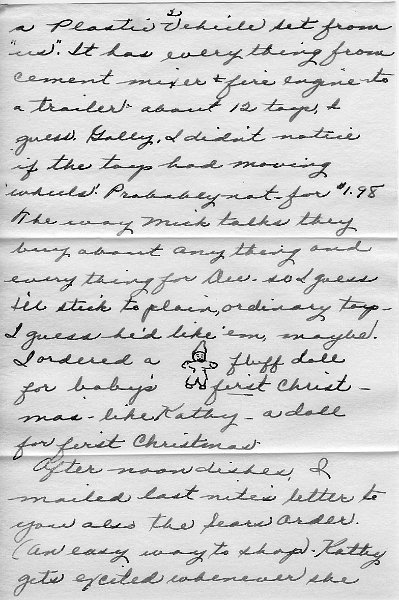 a Plastic Vehicle set from
"us". It has everything from
cement mixer & fire engine to
a trailer - about 12 toys, I
guess. Golly, I didn't notice
if the toys had moving
wheels! Probably not - for $1.98
The way Mick talks they
buy about anything and
everything for - so I guess
I'll stick to plain, ordinary toys -
I guess he'd like 'em, maybe!
I ordered a fluff doll
for baby's first Christ-
mas - like Kathy - a doll
for first Christmas.
After noon dishes, I
mailed last nite's letter to
you also the Sears order.
(An easy way to shop) - Kathy
gets excited whenever she